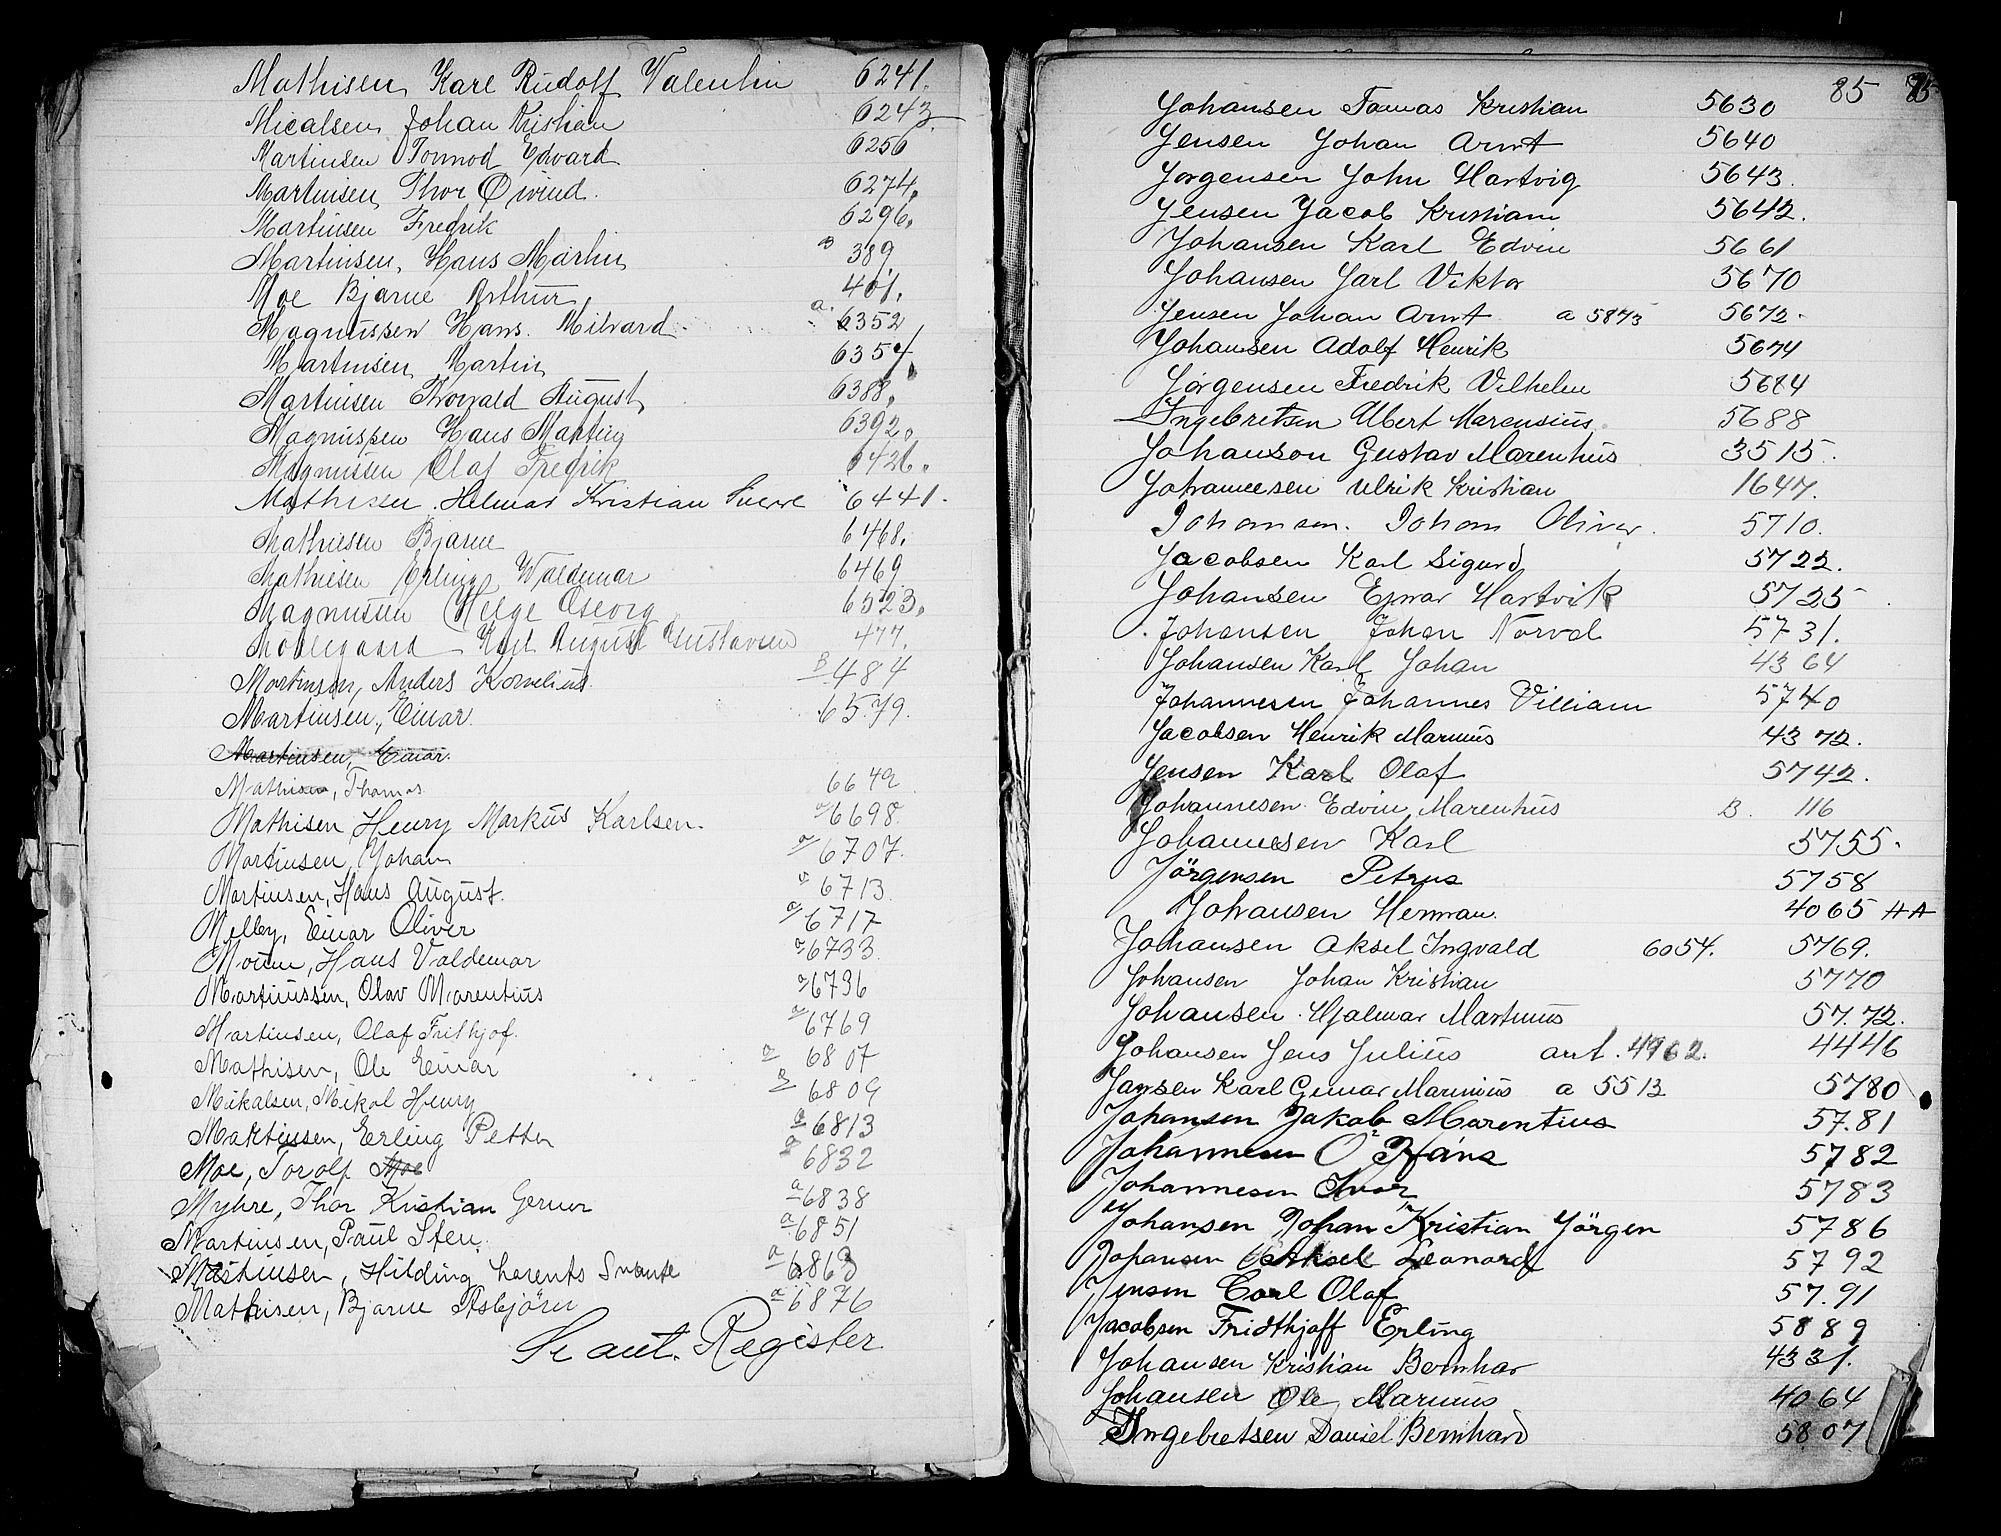 Mathisen, Karl Rudolf Valentin 6241.
Micalsen, Johan Kristian 6243
Martinsen Tormod Edvard 6256
Martinsen, Thor Øivind. 6274.
Martinsen Fredrik 6296.
Martinsen, Hans Martin B 389
Moe Bjarne Arthur 401.
Magnussen Hans. Milvard a. 6352
Martinsen Martin 6354
Martinsen Thorvald August 6388.
Magnussen Hans Martin 6392.
Magnussen Olaf Fredrik 6426.
Mathisen. Helmar Kristian Sverre 6441.
Mathiesen Bjarne 6468.
Mathiesen Erling Waldemar 6469
Magnussen Helge Osvorg 6523.
Karl August Gustavsen 477.
Martinsen, Anders Kornelius. B 484
Martinsen, Einar. 6579.
Martinsen, Einar.
Mathisen, Thomas 6642
Mathisen, Henry Markus Karlsen. a 6698.
Martinsen, Johan a 6707.
Martinsen, Hans August. a 6713
Melby, Einar Oliver a 6717
Moum, Hans Valdemar a 6733
Martinussen, Olav Marentius a 6736
Martinsen, Olaf Frithjof. a 6769
Mathisen, Ole Einar a 6807
Mikalsen, Mikal Henry a 6809
Martinssen, Erling Petter a 6813
Moe, Torolf Moe a 6832
Myhre, Thor Kristian Gerner a 6838
Martinsen, Paul Sten. a 6851
Mastinsen, Hilding Lorents Svante a 6863
Mathisen, Bjarne Asbjörn a 6876
Se aut. Register
85 75
Johansen Tomas Kristian 5630
Jensen Johan Arnt 5640
Jorgensen John Hartvig 5643.
Jensen Jacob Kristian 5642.
Johansen Karl Edvin 5661
Johansen Jarl Viktor 5670
Jensen Johan Arnt a 5873 5672.
Johansen Adolf Henrik 5674
Jörgensen Fredrik Vilhelm 5684
Ingebretsen Albert Marensius. 5688
Johanson Gustav Marentius 3515.
Johannesen Ulrik Kristian 1647.
Johansen. Johan Oliver. 5710.
Jacobsen Karl Sigurd 5722.
Johansen Ejnar Hartvik 5725
Johansen Johan Norval 5731.
Johansen Karl Johan 4364
Johannesen Johannes Villiam 5740
Jacobsen Henrik Marinus 4372.
Jensen Karl Olaf 5742.
Johannesen Edvin Marentius B. 116
Johannesen Karl 5755.
Jörgensen Petrus 5758
Johansen Herman. 4065 HA
Johansen Aksel Ingvald 6054. 5769.
Johansen Johan Kristian 5770
Johansen. Hjalmar Martinus 57.72.
Johansen Jens Julius ant. 4962. 4446
Jansen Karl Gunar Marinius a 5513 5780
Johansen Jakob Marentius 57.81
Johannesen O Hans 5782
Johannesen Ivar 5783
Johansen Johan Kristian Jörgen 5786
Johansen Aksel Leonard 5792
Jensen Carl Olaf 57.91
Jacobsen Fridthjoff Erling 5889
Johansen Kristian Bernhar 4331.
Johansen Ole Marinus 4064
Ingebretsen Daniel Bernhard 5807